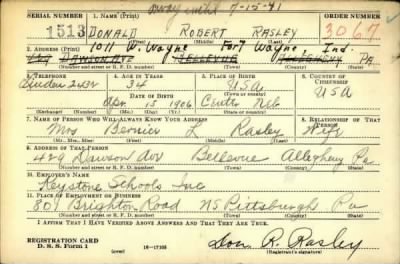 away until 7-15-41
SERIAL NUMBER 1. NAME (Print) ORDER NUMBER
1513 DONALD ROBERT RASLEY 3067
(First) (Middle) (Last)
1011 W. Wayne Fort Wayne, Ind.
2. ADDRESS (Print)
429 DAWSON AVE BELLEVUE ALLEGHENY PA.
(Number and street or R. F. D. number) (Town) (County) (State)
3. TELEPHONE 4. AGE IN YEARS 5. PLACE OF BIRTH 6. COUNTRY OF CITIZENSHIP
Linden 2432 34 U.S.A. USA
DATE OF BIRTH
Apr 15 1906 Neb
(Exchange) (Number) (Mo.) (Day) (Yr.) (Town or county) (State or country)
7. NAME OF PERSON WHO WILL ALWAYS KNOW YOUR ADDRESS 8. RELATIONSHIP OF THAT PERSON
Mrs Bernice L Rasley Wife
(Mr., Mrs., Miss) (First) (Middle) (Last)
9. ADDRESS OF THAT PERSON
429 Dawson Ave Bellevue Allegheny Pa
(Number and street or R. F. D. number) (Town) (County) (State)
10. EMPLOYER'S NAME
Keystone Schools Inc
11. PLACE OF EMPLOYMENT OR BUSINESS
801 Brighton Road NS Pittsburgh Pa
(Number and street or R. F. D. number) (Town) (County) (State)
I AFFIRM THAT I HAVE VERIFIED ABOVE ANSWERS AND THAT THEY ARE TRUE.
REGISTRATION CARD
D. S. S. Form 1 (over) 16-17105
Don R. Rasley
(Registrant's signature)